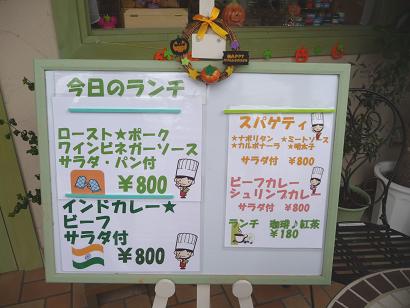 HAPPY HALLOWEEN
今日のランチ
ロースト★ポーク
ワインビネガーソース
サラダ・パン付
￥800
インドカレー★
ビーフ
サラダ付
￥800
スパゲティ
★ナポリタン ★ミートソース
★カルボナーラ ★明太子
サラダ付 ￥800
ビーフカレー
シュリンプカレー
サラダ付 ￥800
ランチ 珈琲♪紅茶
￥180